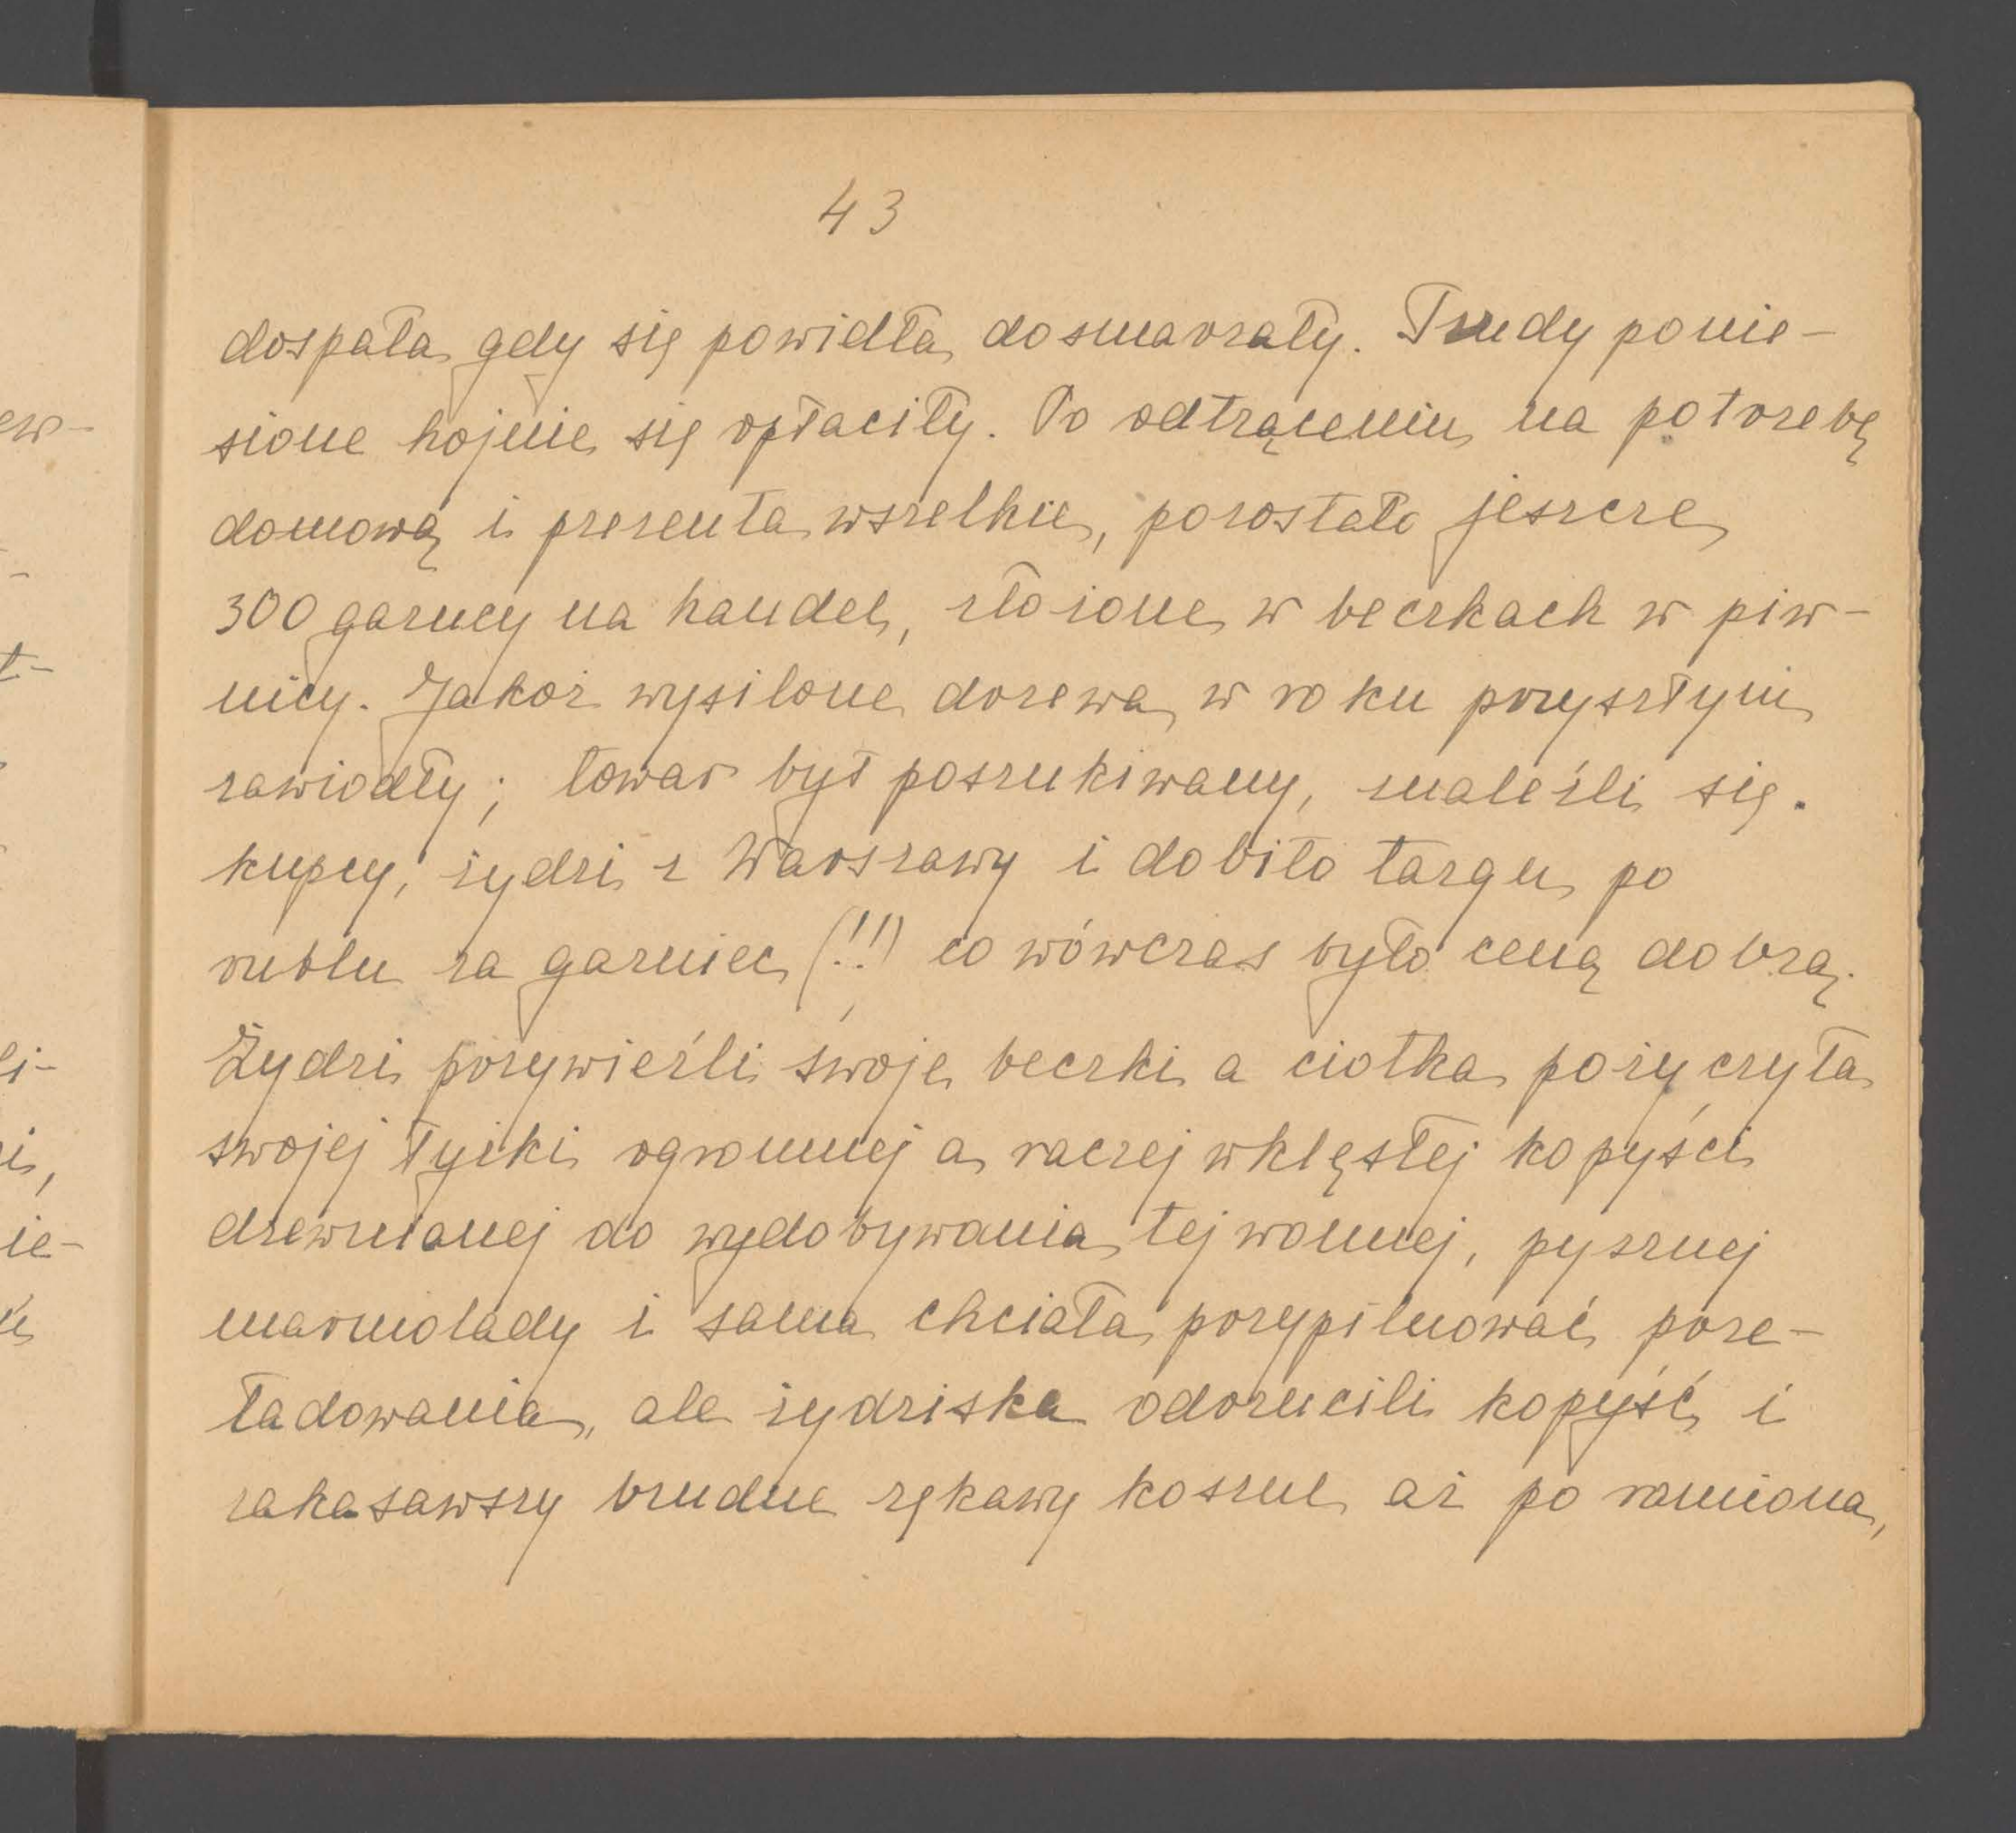 43
dospała gdy się powidła dosmarzały. Trudy ponie-
sione hojnie się opłaciły. Po odtrąceniu na potrzebę
domową i prezenta wszelkie, pozostało jeszcze
300 garncy na handel, złożone w beczkach w piw-
nicy. Jakoż wysilone drzewa w roku przyszłym
zawiodły; towar był poszukiwany, znaleźli się.
kupcy, żydzi z Warszawy i dobito targu po
rublu za garniec (!!) co wówczas było ceną dobrą.
Żydzi przywieźli swoje beczki a ciotka pożyczyła
swojej łyżki ogromnej a raczej wklęsłej kopyści
drewnianej do wydobywania tej wonnej, pysznej
marmolady i sama chciała przypilnować prze-
ładowania, ale żydziska odrzucili kopyść i
zakasawszy brudne rękawy koszul aż po ramiona,
ew-
t-
li-
ie-